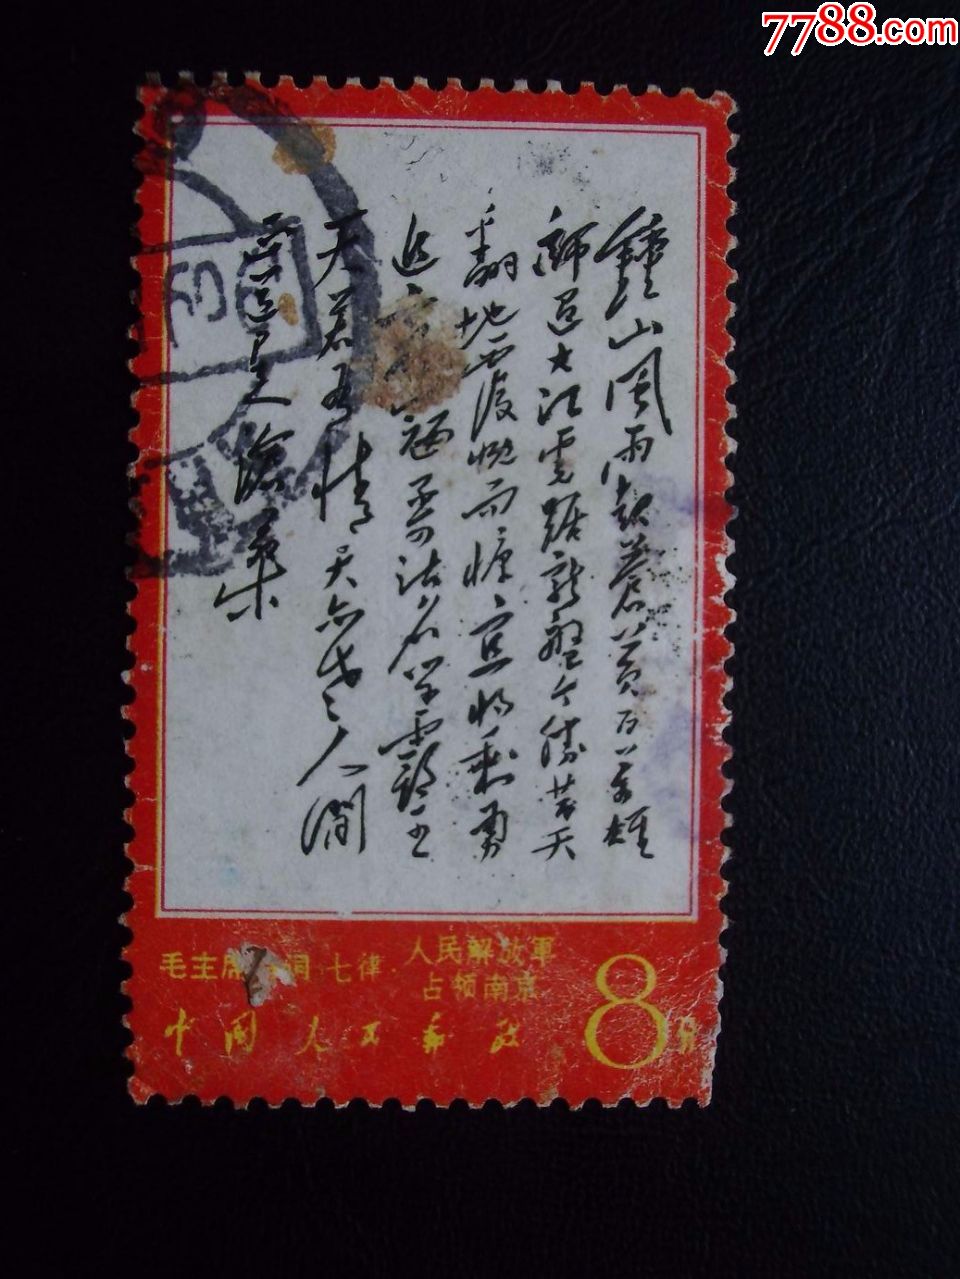 7788.com
鍾山風雨起蒼黃百萬雄
師過大江虎踞龍盤今勝昔天
翻地覆慨而慷宜將剩勇
追窮寇不可沽名學霸王
天若有情天亦老人間
正道是滄桑
毛主席 词·七律·人民解放軍
占领南京
中國人民郵政
8分